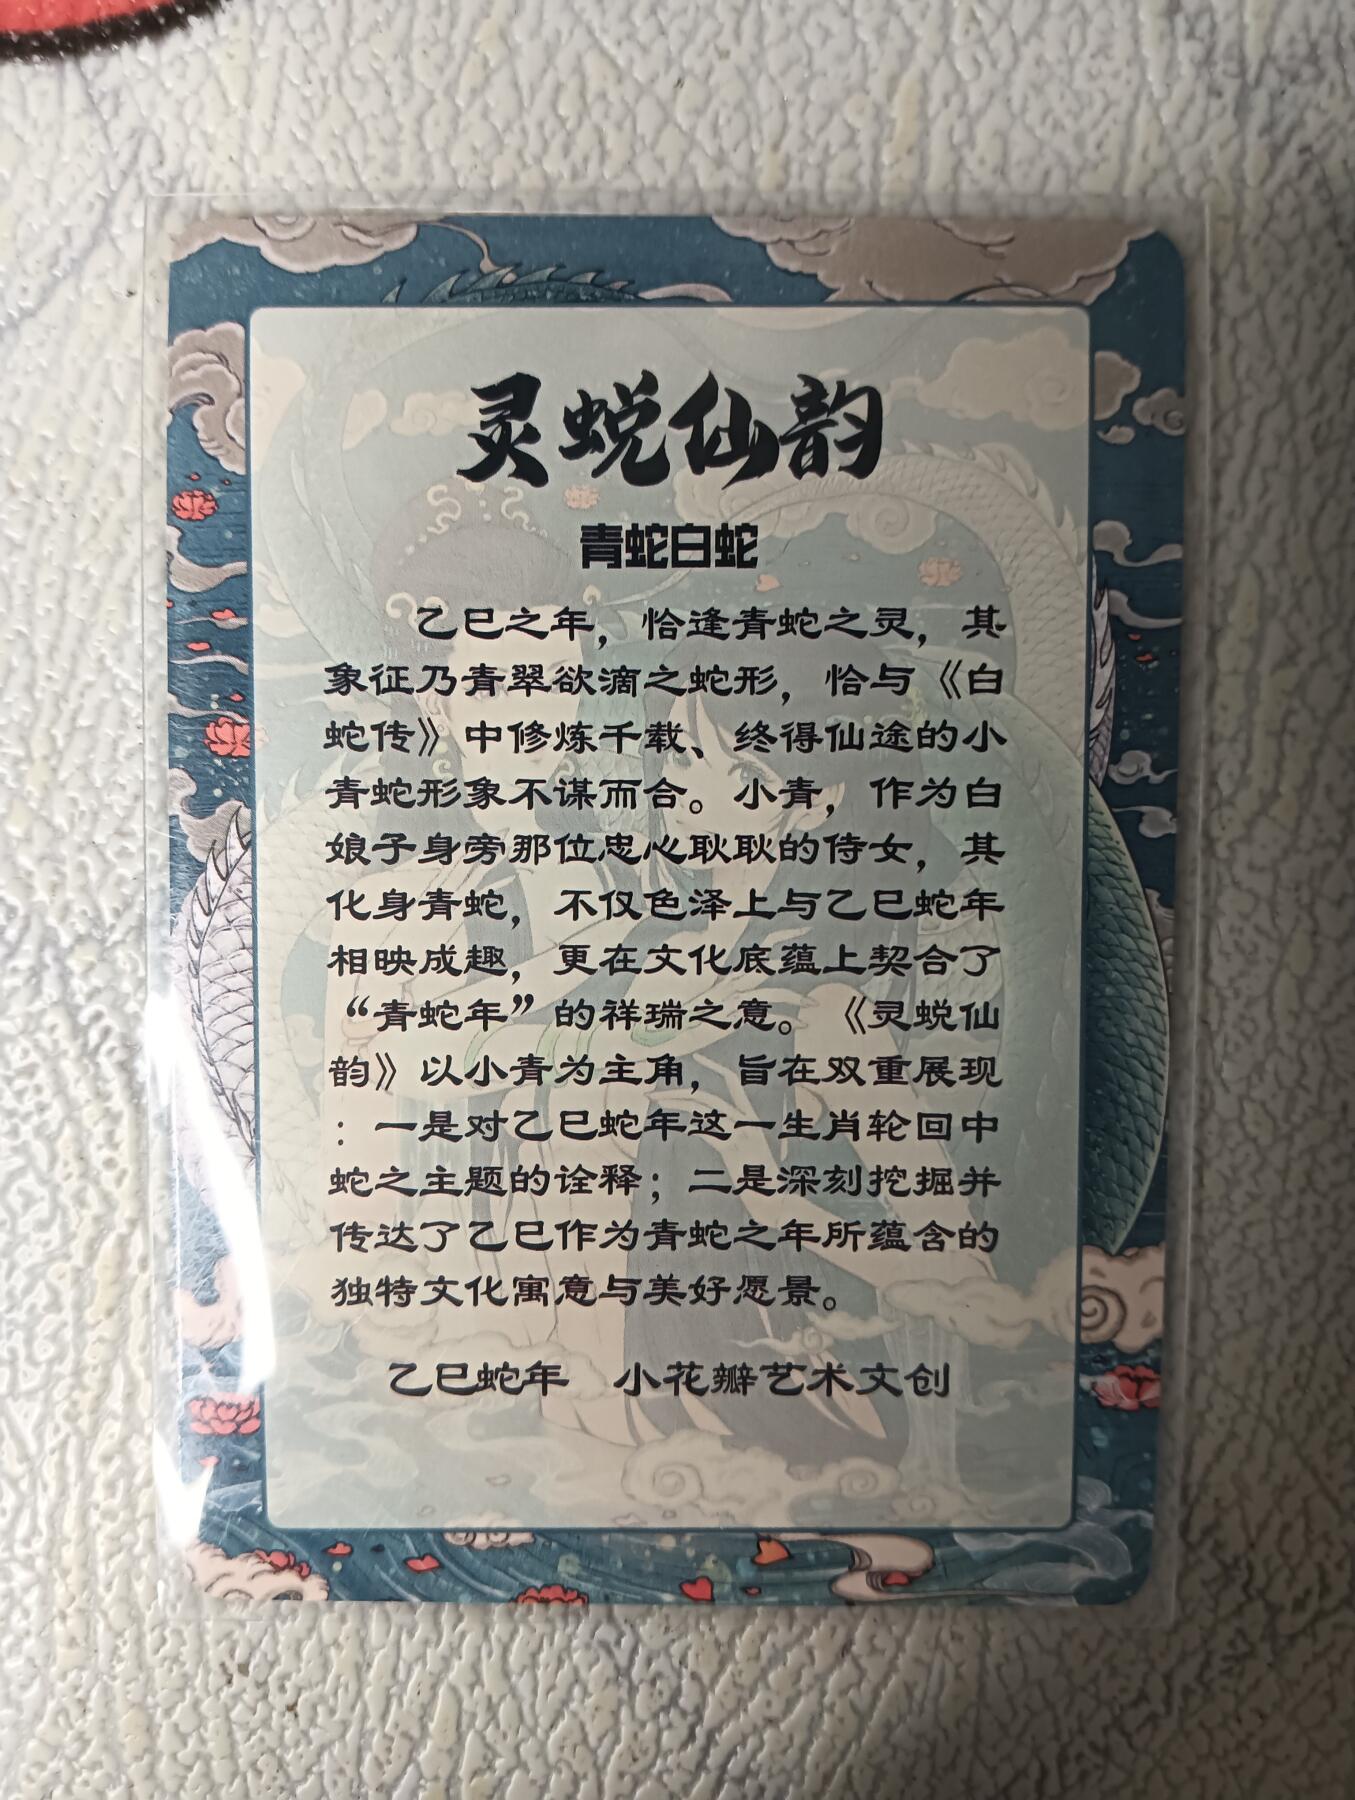 灵蜕仙韵
青蛇白蛇
乙巳之年，恰逢青蛇之灵，其
象征乃青翠欲滴之蛇形，恰与《白
蛇传》中修炼千载、终得仙途的小
青蛇形象不谋而合。小青，作为白
娘子身旁那位忠心耿耿的侍女，其
化身青蛇，不仅色泽上与乙巳蛇年
相映成趣，更在文化底蕴上契合了
“青蛇年”的祥瑞之意。《灵蜕仙
韵》以小青为主角，旨在双重展现
：一是对乙巳蛇年这一生肖轮回中
蛇之主题的诠释；二是深刻挖掘并
传达了乙巳作为青蛇之年所蕴含的
独特文化寓意与美好愿景。
乙巳蛇年 小花瓣艺术文创